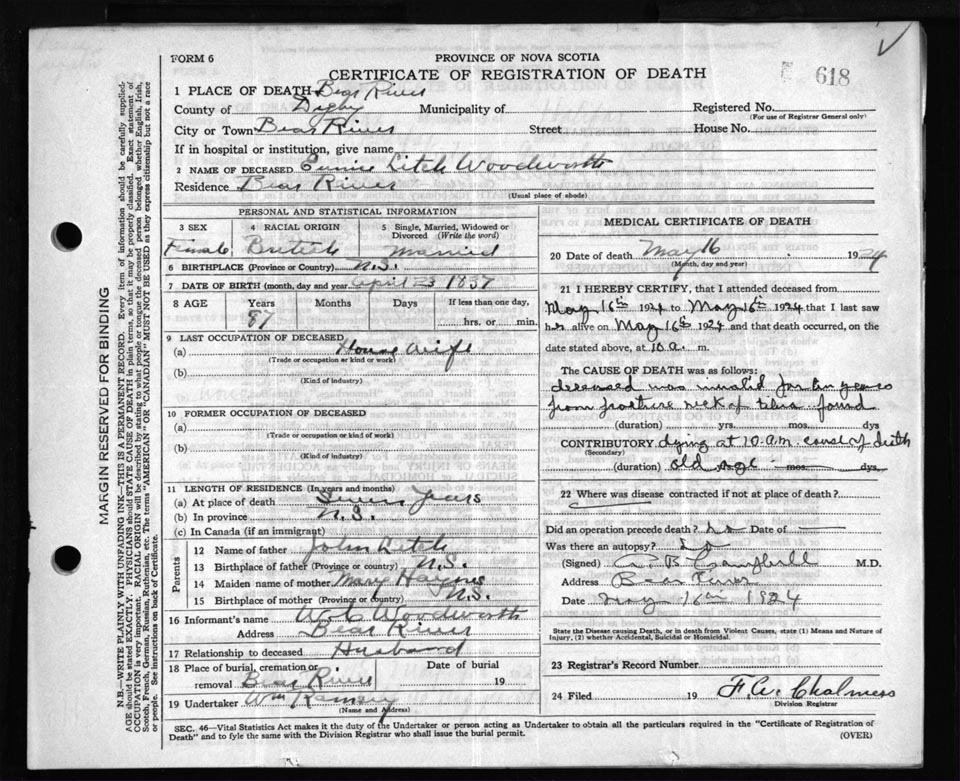 FORM 6
PROVINCE OF NOVA SCOTIA
CERTIFICATE OF REGISTRATION OF DEATH
618
1 PLACE OF DEATH Bear River
County of Digby Municipality of
Registered No.
(For use of Registrar General only)
City or Town Bear River Street House No.
If in hospital or institution, give name
2 NAME OF DECEASED Eunice Litch Woodworth
Residence Bear River
(Usual place of abode)
PERSONAL AND STATISTICAL INFORMATION
3 SEX
Female
4 RACIAL ORIGIN
British
5 Single, Married, Widowed or Divorced (Write the word)
Married
6 BIRTHPLACE (Province or Country) N.S.
7 DATE OF BIRTH (month, day and year) April 23 1837
8 AGE Years Months Days If less than one day,
87 hrs. or min.
9 LAST OCCUPATION OF DECEASED
(a) House Wife
(Trade or occupation or kind or work)
(b)
(Kind of industry)
10 FORMER OCCUPATION OF DECEASED
(a)
(Trade or occupation or kind of work)
(b)
(Kind of industry)
11 LENGTH OF RESIDENCE (In years and months)
(a) At place of death Seven Years
(b) In province N.S.
(c) In Canada (if an immigrant)
Parents
12 Name of father John Litch
13 Birthplace of father (Province or country) N.S.
14 Maiden name of mother Mary Haynes
15 Birthplace of mother (Province or country) N.S.
16 Informant's name Woodworth
Address Bear River
17 Relationship to deceased Husband
18 Place of burial, cremation or removal Bear River
Date of burial
19
19 Undertaker Wm Ramsey
(Name and Address)
MEDICAL CERTIFICATE OF DEATH
20 Date of death May 16 1924
(Month, day and year)
21 I HEREBY CERTIFY, that I attended deceased from
May 16th 1924 to May 16th 1924 that I last saw
her alive on May 16th 1924 and that death occurred, on the
date stated above, at 10 a. m.
The CAUSE OF DEATH was as follows:
deceased was invalid for ten years
from fracture neck of found
(duration) yrs. mos. dys
CONTRIBUTORY dying at 10 a.m. cause of death
(Secondary)
(duration) old age mos. dys.
22 Where was disease contracted if not at place of death?
Did an operation precede death? No Date of
Was there an autopsy? No
(Signed) Campbell M.D.
Address Bear River
Date May 16th 1924
State the Disease causing Death, or in death from Violent Causes, state (1) Means and Nature
of Injury, (2) whether Accidental, Suicidal or Homicidal.
23 Registrar's Record Number
24 Filed 19 F.W. Chalmers
Division Registrar
SEC. 46—Vital Statistics Act makes it the duty of the Undertaker or person acting as Undertaker to obtain all the particulars required in the "Certificate of Registration of
Death" and to fyle the same with the Division Registrar who shall issue the burial permit.
(OVER)
MARGIN RESERVED FOR BINDING
N.B.—WRITE PLAINLY WITH UNFADING INK—THIS IS A PERMANENT RECORD. Every item of information should be carefully supplied.
AGE should be stated EXACTLY. PHYSICIANS should STATE CAUSE OF DEATH in plain terms, so that it may be properly classified. Exact statement of
OCCUPATION is very important. RACIAL ORIGIN will be described by stating to what people or tongue the deceased person belonged whether English, Irish,
Scotch, French, German, Russian, Ruthenian, etc. The terms "AMERICAN" OR "CANADIAN" MUST NOT BE USED as they express citizenship but not a race
or people. See instructions on back of Certificate.